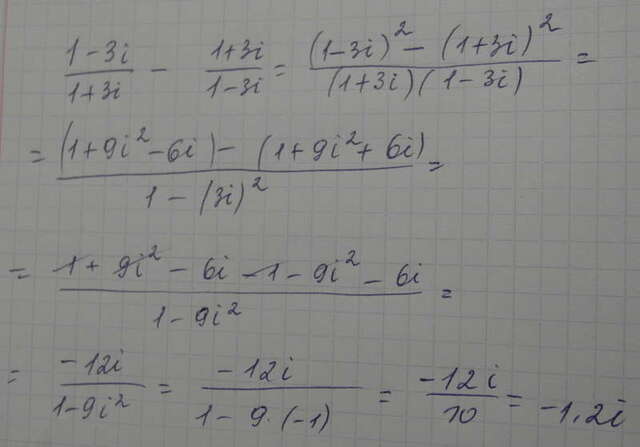 (1-3i)/(1+3i) - (1+3i)/(1-3i) = ((1-3i)² - (1+3i)²)/((1+3i)(1-3i)) =
= ((1+9i²-6i) - (1+9i²+6i))/(1-(3i)²) =
= (1+9i²-6i-1-9i²-6i)/(1-9i²) =
= (-12i)/(1-9i²) = (-12i)/(1-9·(-1)) = (-12i)/10 = -1,2i